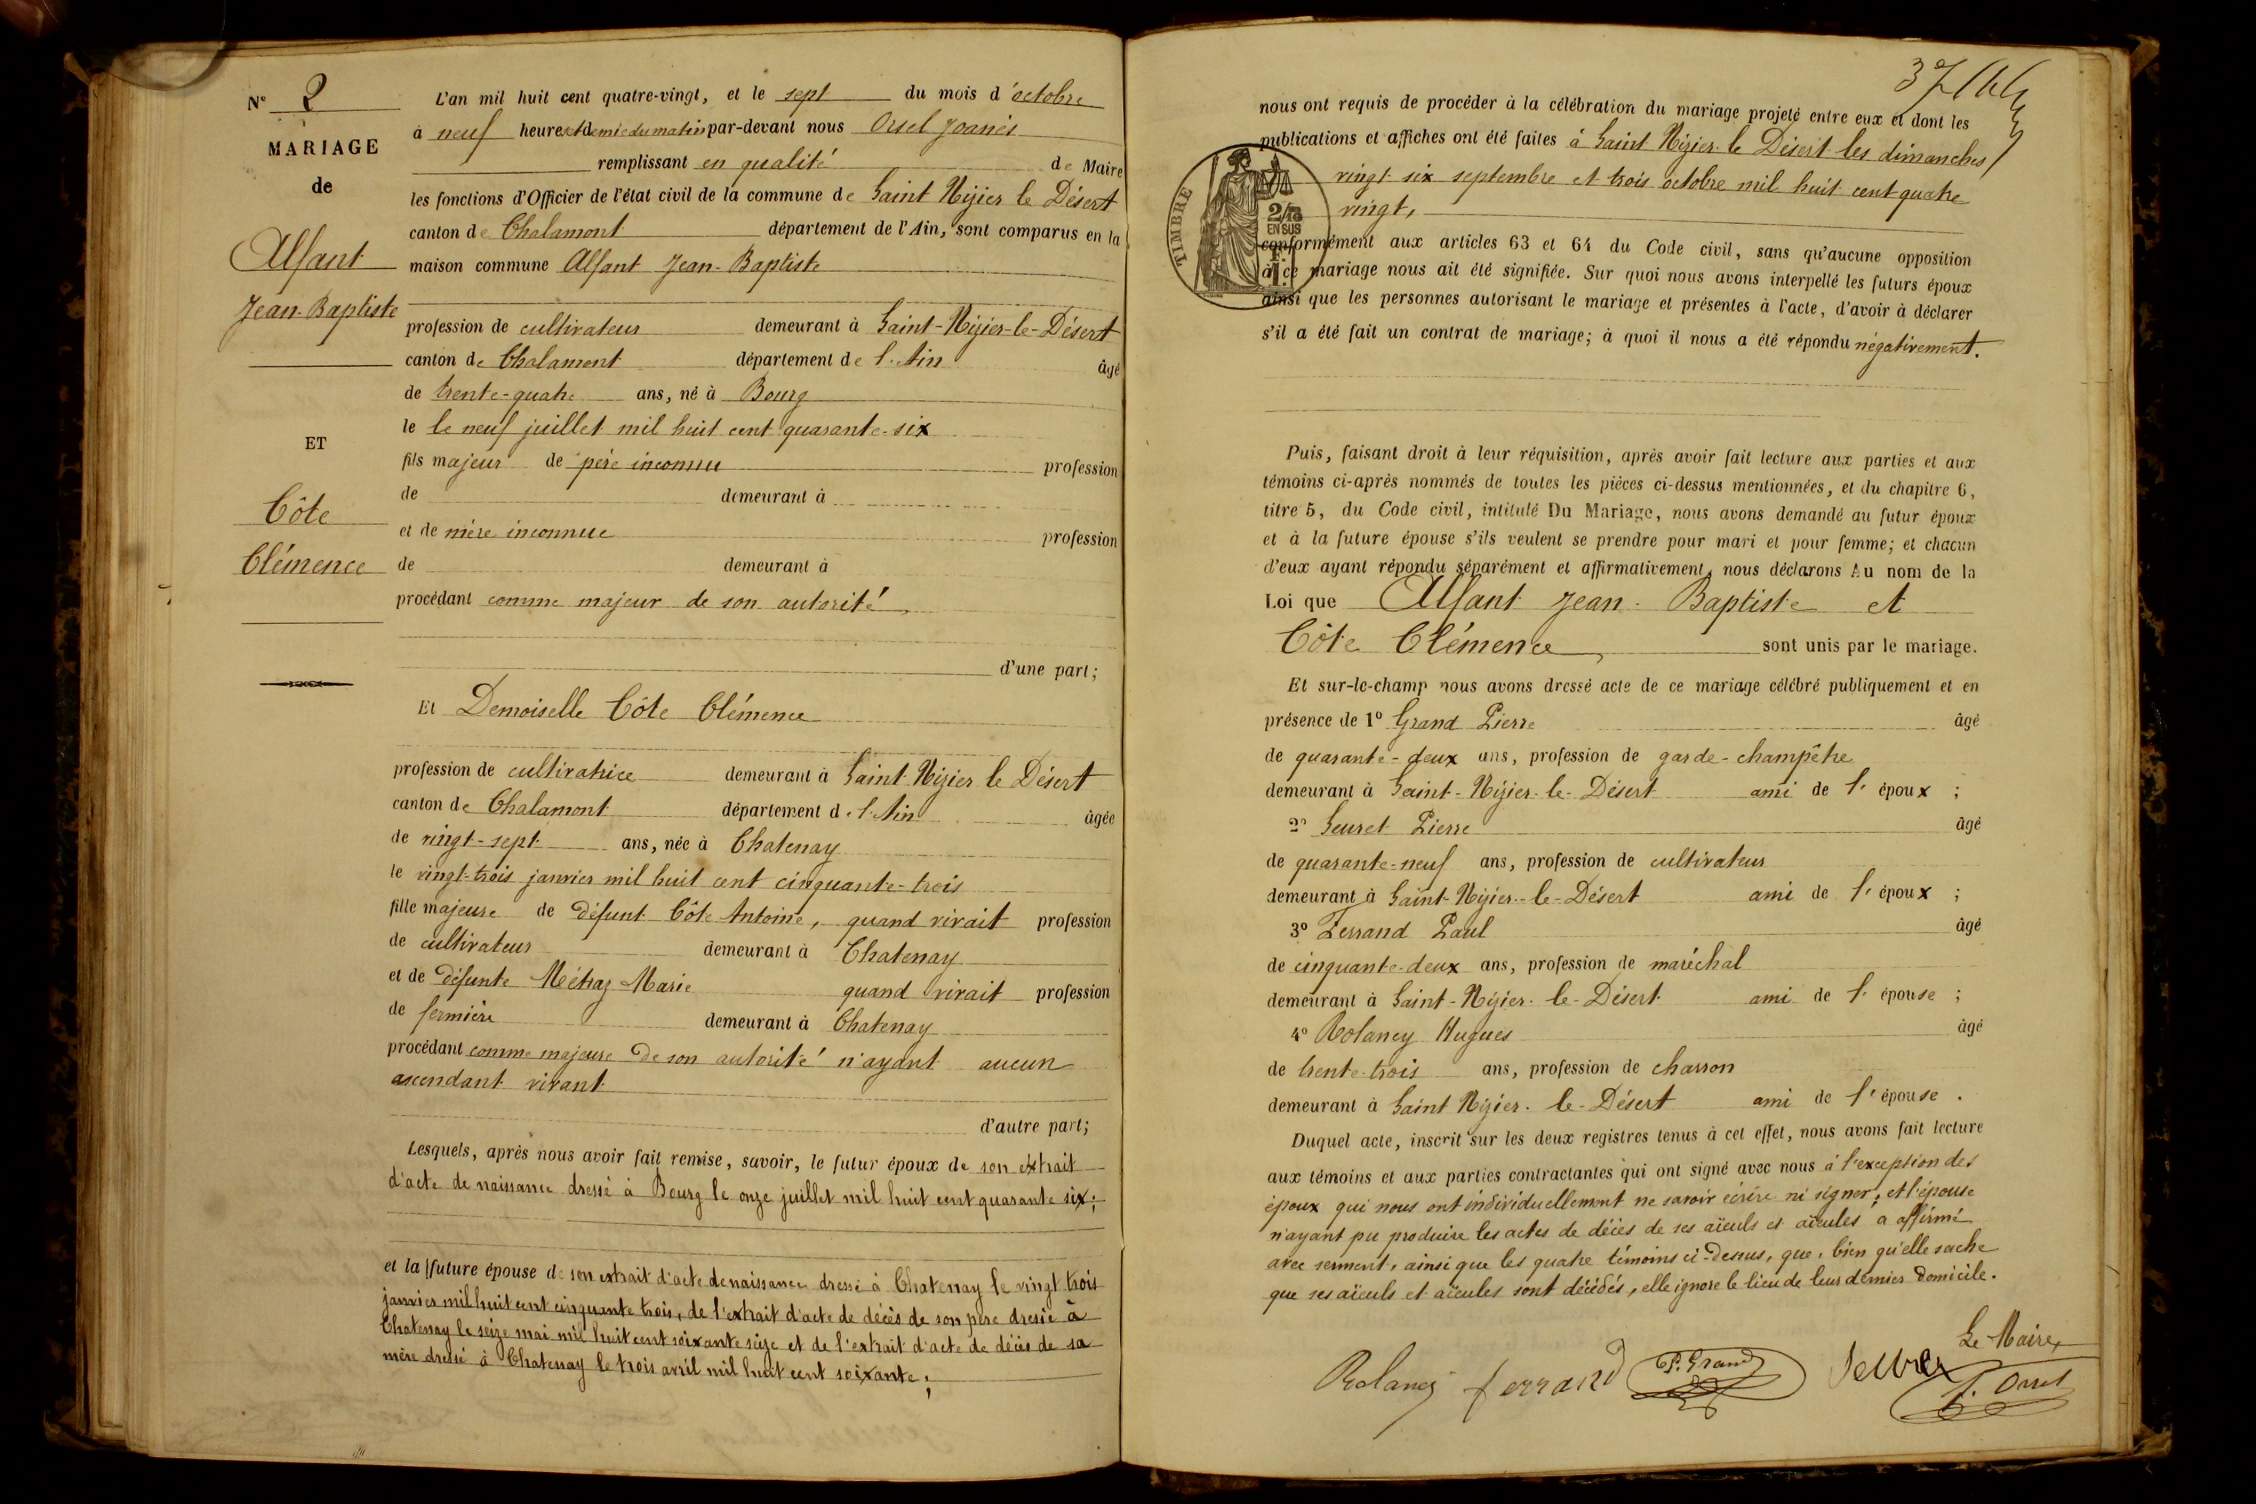 N° 2
MARIAGE
de
Alfant
Jean-Baptiste
ET
Côte
Clémence
L'an mil huit cent quatre-vingt, et le sept du mois d'octobre
à neuf heures et demie du matin par-devant nous Orsel Joanès
remplissant en qualité de Maire
les fonctions d'Officier de l'état civil de la commune de Saint Nizier le Désert
canton de Chalamont département de l'Ain, sont comparus en la
maison commune Alfant Jean-Baptiste
profession de cultivateur demeurant à Saint-Nizier-le-Désert
canton de Chalamont département de l'Ain âgé
de trente-quatre ans, né à Bourg
le le neuf juillet mil huit cent quarante-six
fils majeur de père inconnu profession
de demeurant à
et de mère inconnue profession
de demeurant à
procédant comme majeur de son autorité
d'une part;
Et Demoiselle Côte Clémence
profession de cultivatrice demeurant à Saint-Nizier le Désert
canton de Chalamont département de l'Ain âgée
de vingt-sept ans, née à Chatenay
le vingt-trois janvier mil huit cent cinquante-trois
fille majeure de défunt Côte Antoine, quand vivait profession
de cultivateur demeurant à Chatenay
et de défunte Métraz Marie quand vivait profession
de fermière demeurant à Chatenay
procédant comme majeure de son autorité n'ayant aucun
ascendant vivant
d'autre part;
Lesquels, après nous avoir fait remise, savoir, le futur époux de son extrait
d'acte de naissance dressé à Bourg le onze juillet mil huit cent quarante six;
et la future épouse de son extrait d'acte de naissance dressé à Chatenay le vingt trois
janvier mil huit cent cinquante trois, de l'extrait d'acte de décès de son père dressé à
Chatenay le seize mai mil huit cent soixante seize et de l'extrait d'acte de décès de sa
mère dressé à Chatenay le trois avril mil huit cent soixante;
nous ont requis de procéder à la célébration du mariage projeté entre eux et dont les
publications et affiches ont été faites à Saint Nizier-le Désert les dimanches
vingt six septembre et trois octobre mil huit cent quatre
vingt,
TIMBRE
2/10
EN SUS
conformément aux articles 63 et 64 du Code civil, sans qu'aucune opposition
à ce mariage nous ait été signifiée. Sur quoi nous avons interpellé les futurs époux
ainsi que les personnes autorisant le mariage et présentes à l'acte, d'avoir à déclarer
s'il a été fait un contrat de mariage; à quoi il nous a été répondu négativement.
Puis, faisant droit à leur réquisition, après avoir fait lecture aux parties et aux
témoins ci-après nommés de toutes les pièces ci-dessus mentionnées, et du chapitre 6,
titre 5, du Code civil, intitulé Du Mariage, nous avons demandé au futur époux
et à la future épouse s'ils veulent se prendre pour mari et pour femme; et chacun
d'eux ayant répondu séparément et affirmativement, nous déclarons Au nom de la
Loi que Alfant Jean-Baptiste et
Côte Clémence sont unis par le mariage.
Et sur-le-champ nous avons dressé acte de ce mariage célébré publiquement et en
présence de 1° Grand Pierre âgé
de quarante-deux ans, profession de garde-champêtre
demeurant à Saint-Nizier-le-Désert ami de l'époux ;
2° Seuret Pierre âgé
de quarante-neuf ans, profession de cultivateur
demeurant à Saint-Nizier-le-Désert ami de l'époux ;
3° Ferrand Paul âgé
de cinquante-deux ans, profession de maréchal
demeurant à Saint-Nizier-le-Désert ami de l'épouse ;
4° Rolancy Hugues âgé
de trente-trois ans, profession de charron
demeurant à Saint Nizier-le-Désert ami de l'épouse .
Duquel acte, inscrit sur les deux registres tenus à cet effet, nous avons fait lecture
aux témoins et aux parties contractantes qui ont signé avec nous à l'exception des
époux qui nous ont individuellement ne savoir écrire ni signer; et l'épouse
n'ayant pu produire les actes de décès de ses aïeuls et aïeules a affirmé
avec serment, ainsi que les quatre témoins ci-dessus, que, bien qu'elle sache
que ses aïeuls et aïeules sont décédés, elle ignore le lieu de leur dernier domicile.
Le Maire,
Rolancy ferrand P. Grand Seuret J. Orsel